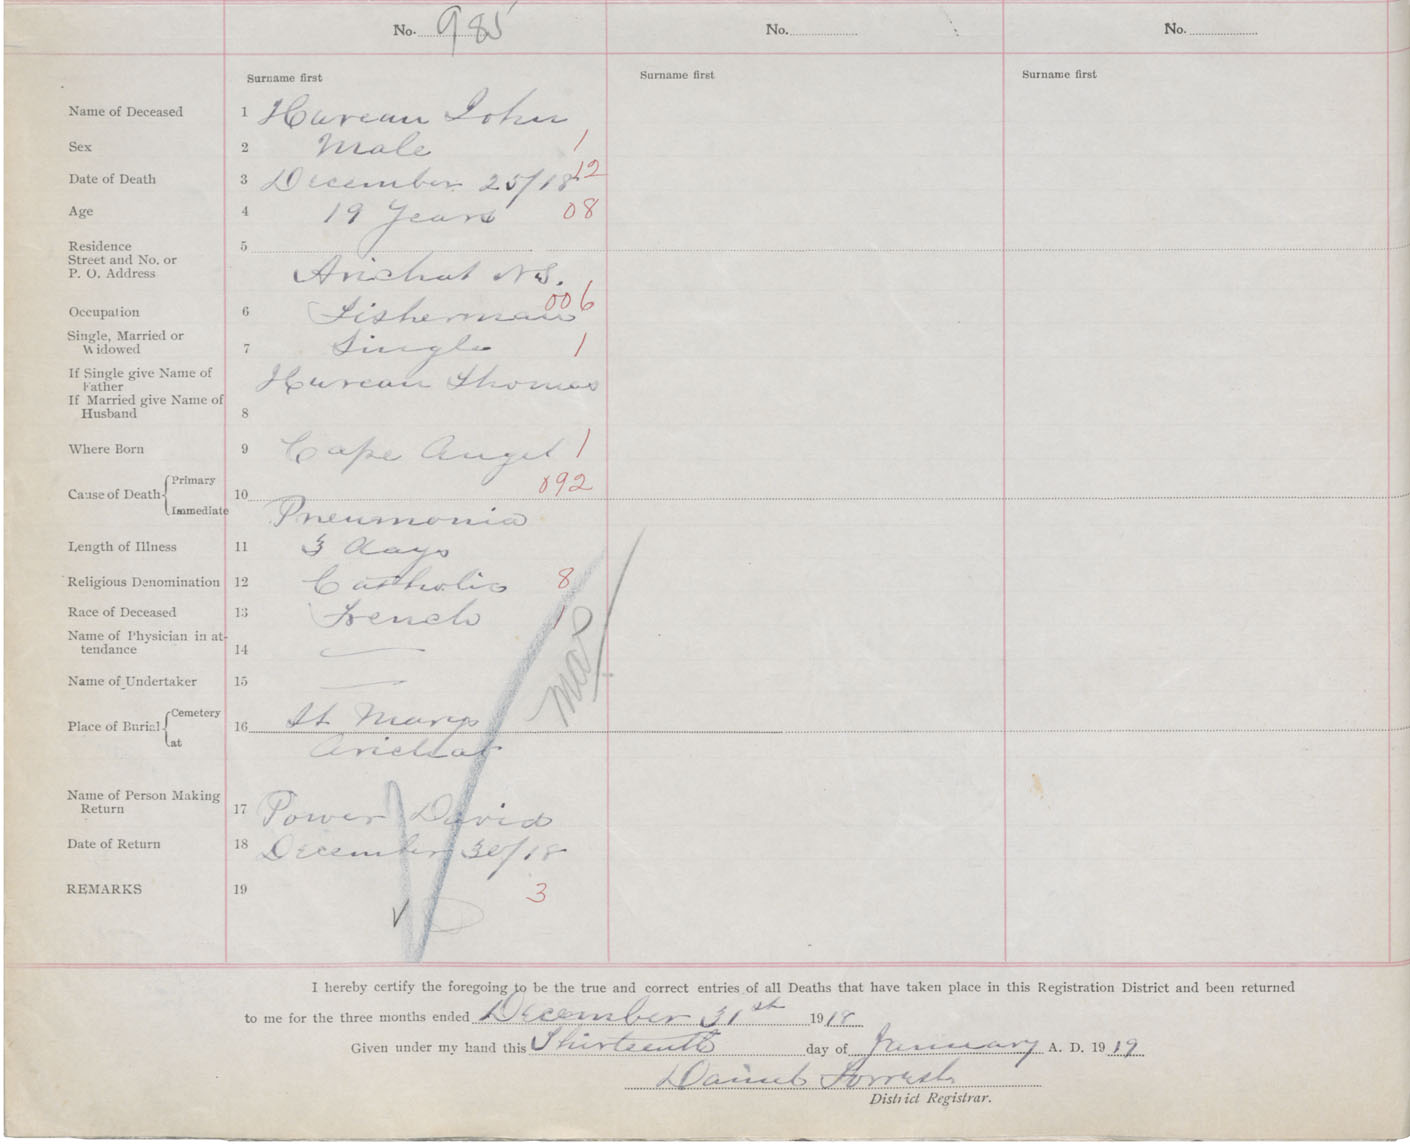 No. 985 No. No.
Surname first Surname first Surname first
Name of Deceased 1 Hureau John
Sex 2 Male 1
Date of Death 3 December 25/18 12
Age 4 19 Years 08
Residence 5
Street and No. or
P. O. Address Arichat N.S.
Occupation 6 Fisherman 006
Single, Married or
Widowed 7 Single 1
If Single give Name of
Father Hureau Thomas
If Married give Name of
Husband 8
Where Born 9 Cape Auget 1
Cause of Death Primary 10 092
Immediate Pneumonia
Length of Illness 11 3 days
Religious Denomination 12 Catholic 8
Race of Deceased 13 French 1
Name of Physician in at-
tendance 14
Name of Undertaker 15
Place of Burial Cemetery 16 St Marys
at Arichat
Name of Person Making
Return 17 Power David
Date of Return 18 December 30/18
REMARKS 19 3
I hereby certify the foregoing to be the true and correct entries of all Deaths that have taken place in this Registration District and been returned
to me for the three months ended December 31st 1918
Given under my hand this Thirteenth day of January A. D. 1919
Forrest
District Registrar.